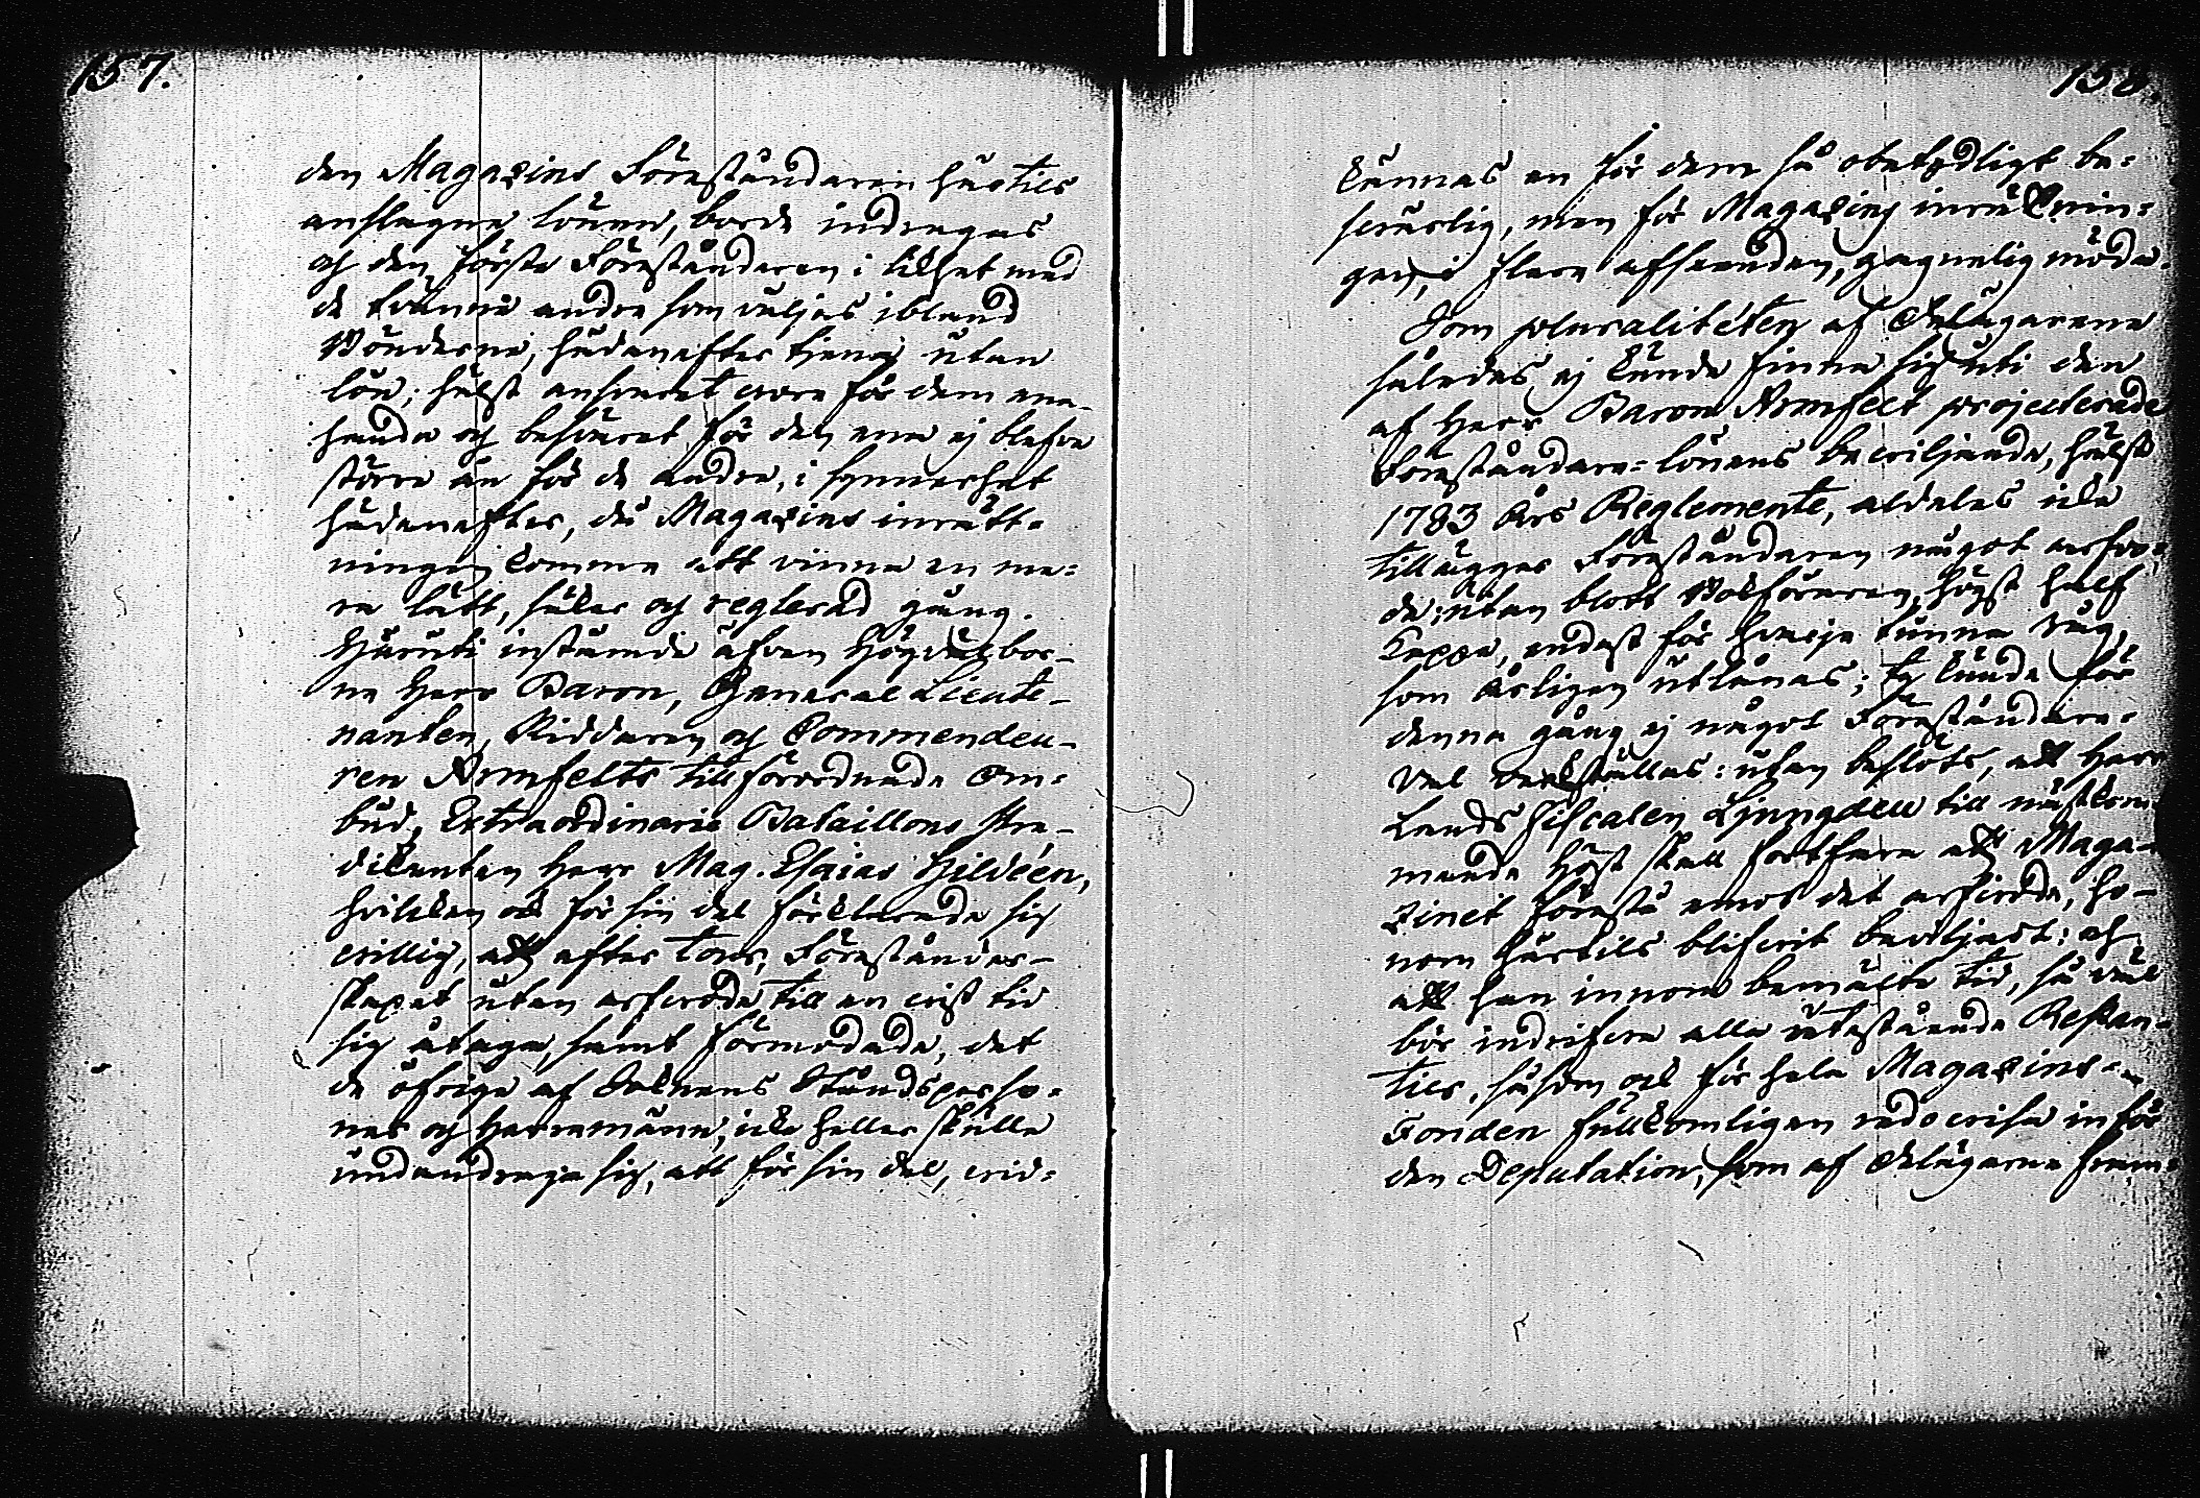 157.
den Magazins Föreståndaren härtils
anslagne lönen, borde indragas
och den förste Föreståndaren i likhet med
de tvänne andre som väljas ibland
Bönderne, hädanefter tjena utan
lön; hälst ansvaret vore för dem ena-
handa och besväret för den ena ej blefve
större än för de andre, i synnerhet
hädanefter, då Magazins inrätt-
ningen komme att vinna en me-
ra lätt, säker och reglerad gång.
Häruti instämde äfven Högvälbor-
ne Herr Baron, General Lieute-
nanten, Riddaren och Commendeu-
ren Armfelts tillförordnade Om-
bud, Extraordinarie Bataillons Pre-
dikanten Herr Mag. Esaias Hildéen,
hvilken ock för sin del förklarade sig
villig, att efter tour, Föreståndar-
skapet utan arfvode till en viss tid
sig åtaga, samt förmodade, det
de öfrige af Socknens Ståndsperso-
ner och Herremänn, icke heller skulle
undandraga sig, att för sin del, vid-
158.
kännas en för dem så obetydligt be-
svärlig, men för Magazins inräktnin-
gen, i flera afseenden, gagnelig möda.
Som pluralitéten af Delägarena
således ej kunde finna sig uti den
af Herr Baron Armfelt projecterade
Föreståndare-lönens beviljande, hälst
1783 Års Reglemente, aldeles icke
tillägger Föreståndaren något arfvo-
de; utan blott Bokföraren, högst half
Kappe, endast för hvarje tunna råg,
som årligen utlånas; ty kunde för
denna gång ej något Föreståndare-
val verkställas: utan beslöts, att Herr
Lands Fiscalen Ljungdell till nästkom-
mande Höst skall fortfara att Maga-
zinet förestå emot det arfvode, ho-
nom härtils blifvit beviljadt: och
att han innom bemälte tid, så väl
bör indrifva alla utestående Restan-
tier, såsom ock för hela Magazins-
Fonden fullkomligen redovisa inför
den Deputation, som af Delägarne fram-